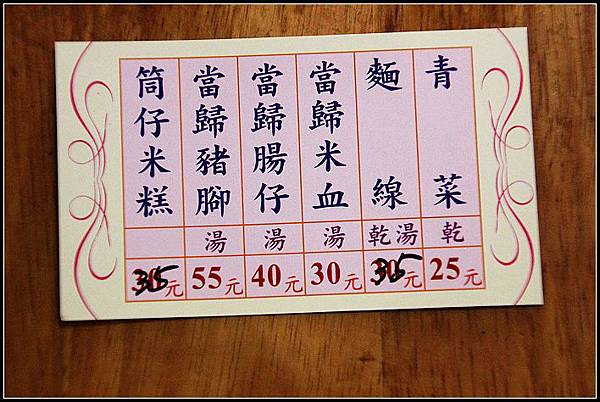 青菜 乾 25元
麵線 乾湯 35元
當歸米血 湯 30元
當歸腸仔 湯 40元
當歸豬腳 湯 55元
筒仔米糕 35元